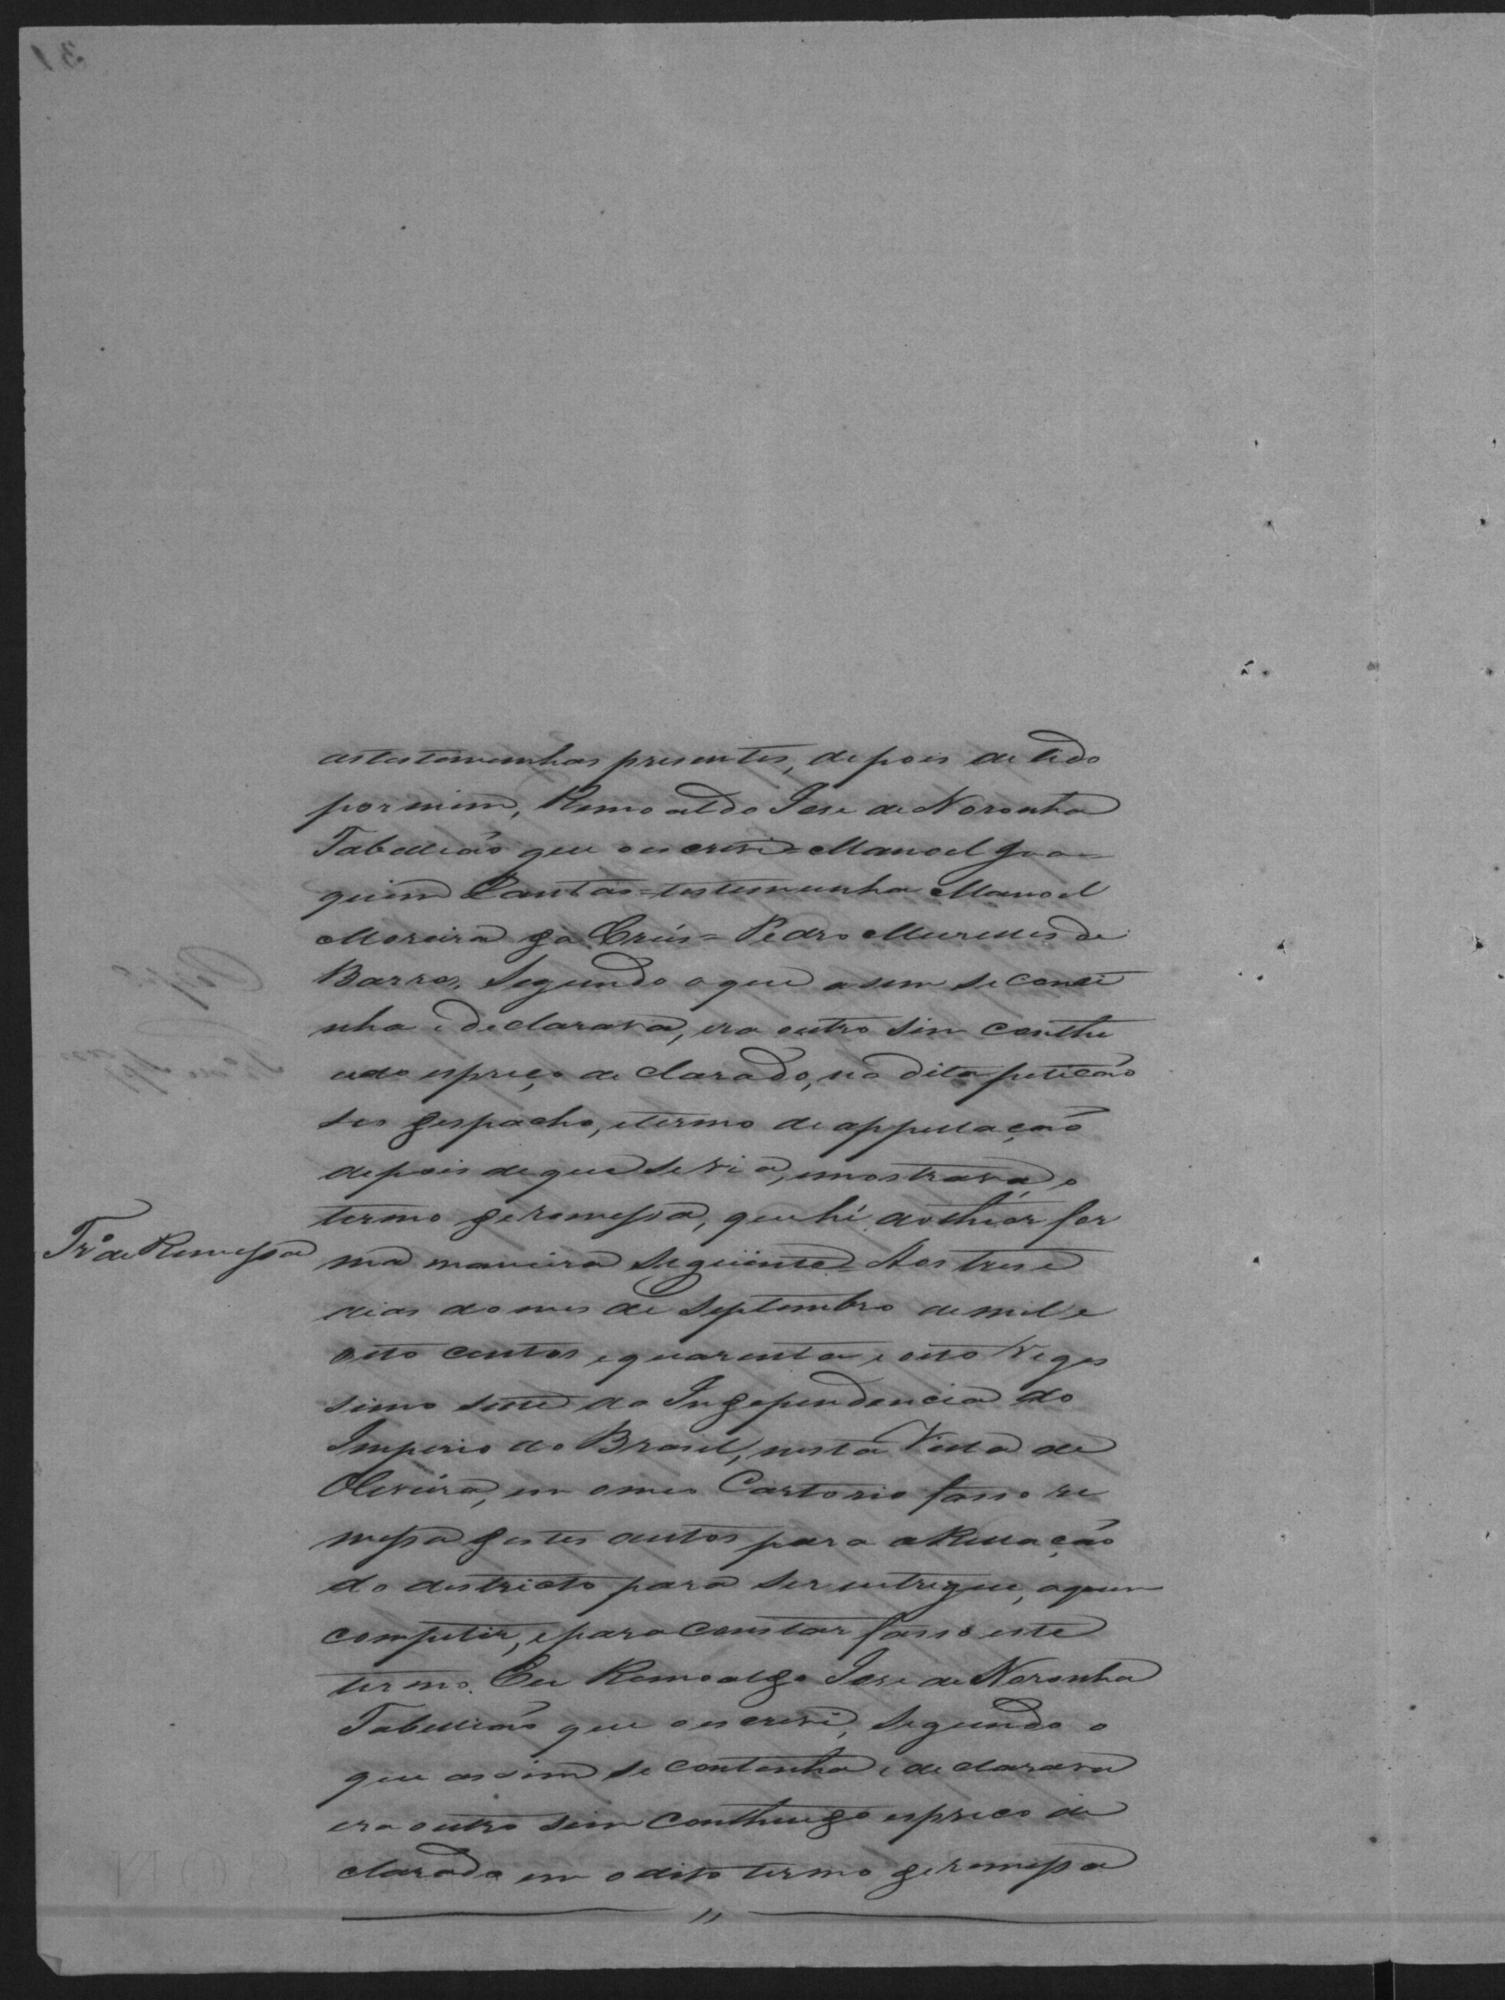 astestemunhas presentes, depois de lido
por mim, Remoaldo Jose de Noronha
Tabellião que o escrevi = Manoel Joa
quim Dantas = testemunha Manoel
Moreira da Crús = Pedro Murelles de
Barros, Segundo o que asim se conti
nha e declarava, era outro sim conthe
udo espreço declarado, no dito petição
seo despacho, e termo de appellação
depois de que se via, e mostrava, o
termo de remessa, que hé, do theor for
ma maneira seguinte = Aos trese
Tr.º de Remessa
dias do mes de Septembro de mil e
oito centos e quarenta e oito Viges
simo sette da Independencia do
Imperio do Brasil, nesta Villa de
Oliveira, em o meo Cartorio fasso re
messa destes autos para a Rellação
do destricto para ser entregue, aquem
competir, e para constar fasso este
termo. Eu Remoaldo Jose de Noronha
Tabellião que o escrevi, segundo o
que assim se continha, e declarava
era outro sim contheudo espreco de
clarado em o dito termo de remessa